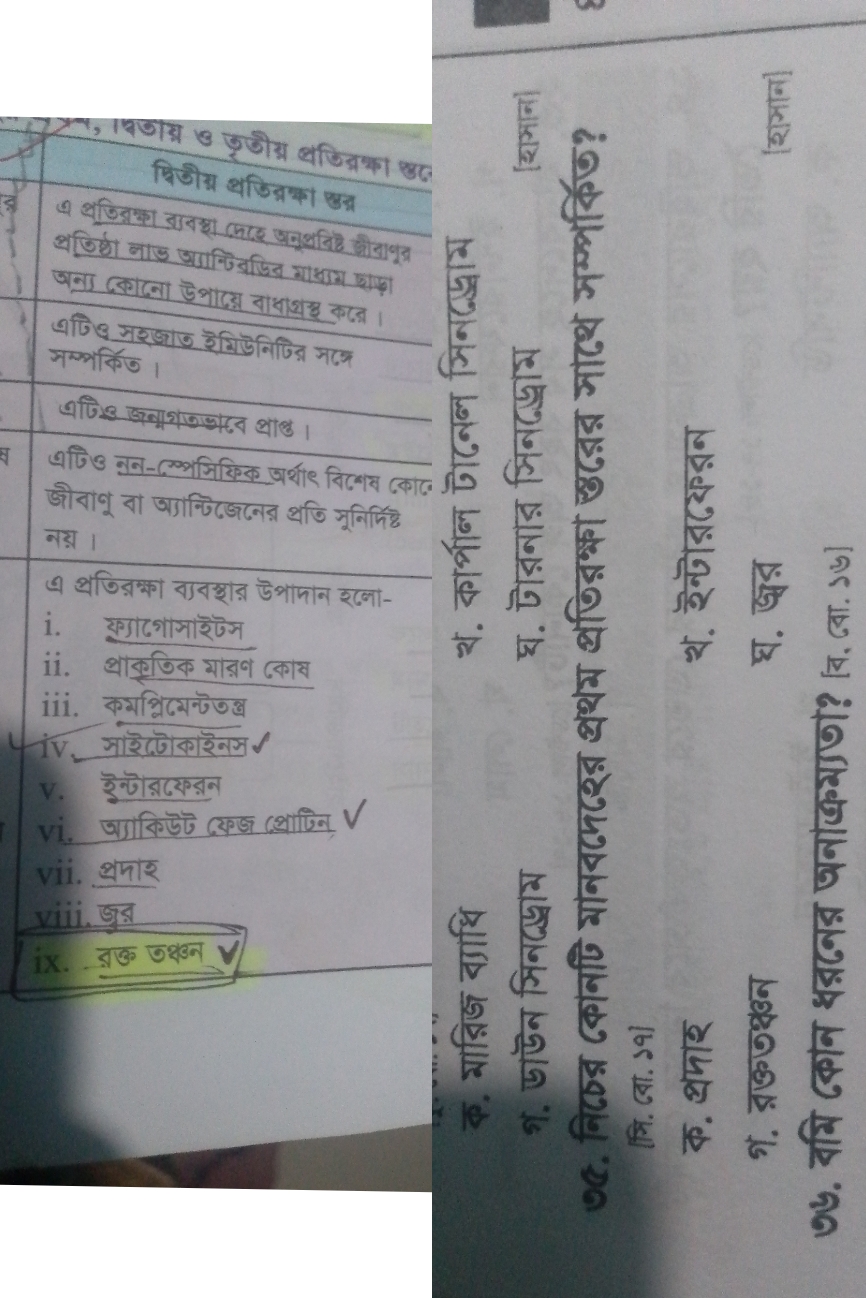 দ্বিতীয় ও তৃতীয় প্রতিরক্ষা
দ্বিতীয় প্রতিরক্ষা স্তর
এ প্রতিরক্ষা ব্যবস্থা দেহে অনুপ্রবিষ্ট জীবাণুর
প্রতিষ্ঠা লাভ অ্যান্টিবডির মাধ্যম ছাড়া
অন্য কোনো উপায়ে বাধাগ্রস্থ করে।
এটিও সহজাত ইমিউনিটির সঙ্গে
সম্পর্কিত।
এটিও জন্মগতভাবে প্রাপ্ত।
এটিও নন-স্পেসিফিক অর্থাৎ বিশেষ
জীবাণু বা অ্যান্টিজেনের প্রতি সুনির্দিষ্ট
নয়।
এ প্রতিরক্ষা ব্যবস্থার উপাদান হলো-
i. ফ্যাগোসাইটস
ii. প্রাকৃতিক মারণ কোষ
iii. কমপ্লিমেন্টতন্ত্র
iv. সাইটোকাইনস
v. ইন্টারফেরন
vi. অ্যাকিউট ফেজ প্রোটিন
vii. প্রদাহ
viii. জ্বর
ix. রক্ত তঞ্চন
ক. মারিজ ব্যাধি খ. কার্পাল টানেল সিনড্রোম
গ. ডাউন সিনড্রোম ঘ. টারনার সিনড্রোম [হাসান]
৩৫. নিচের কোনটি মানবদেহের প্রথম প্রতিরক্ষা স্তরের সাথে সম্পর্কিত?
[সি. বো. ১৭]
ক. প্রদাহ খ. ইন্টারফেরন
গ. রক্ততঞ্চন ঘ. জ্বর [হাসান]
৩৬. বমি কোন ধরনের অনাক্রম্যতা? [ব. বো. ১৬]